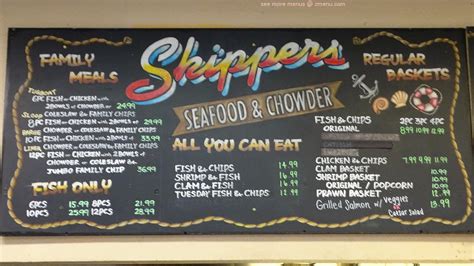 see more menus @ zmenu.com
Skippers
SEAFOOD & CHOWDER
FAMILY
MEALS
TUGBOAT
6PC FISH OR CHICKEN WITH
2BOWLS OF CHOWDER 24.99
SLOOP COLESLAW & FAMILY CHIPS
8PC FISH OR CHICKEN WITH 2BOWLS OF 29.99
BARGE CHOWDER OR COLESLAW & FAMILY CHIPS
10PC FISH OR CHICKEN WITH 2BOWLS OF 33.99
CHOWDER OR COLESLAW & FAMILY CHIPS
12PC FISH OR CHICKEN WITH 2BOWLS OF
CHOWDER OR COLESLAW &
JUMBO FAMILY CHIP 36.99
FISH ONLY
6PCS 15.99 8PCS 21.99
10PCS 25.99 12PCS 28.99
ALL YOU CAN EAT
FISH & CHIPS 14.99
SHRIMP & FISH 16.99
CLAM & FISH 16.99
TUESDAY FISH & CHIPS 12.99
REGULAR
BASKETS
FISH & CHIPS 2PC 3PC 4PC
ORIGINAL 8.99 10.99 12.99
CHICKEN & CHIPS 7.99 9.99 11.99
CLAM BASKET 9.99
SHRIMP BASKET
ORIGINAL / POPCORN 10.99
PRAWN BASKET 11.99
Grilled Salmon w/ Veggies 13.99
OR
Caesar Salad